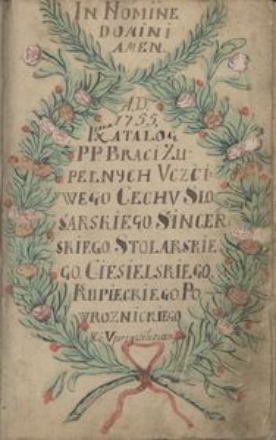 IN NOMINE
DOMINI
AMEN.
A.D.
1755.
KATALOG
P.P. BRACI ZU-
PEŁNYCH UCZCI
WEGO CECHU SLO
SARSKIEGO. SINCER
SKIEGO. STOLARSKIE
GO. CIESIELSKIEGO.
KUPIECKIEGO. PO
WROZNICKIEGO